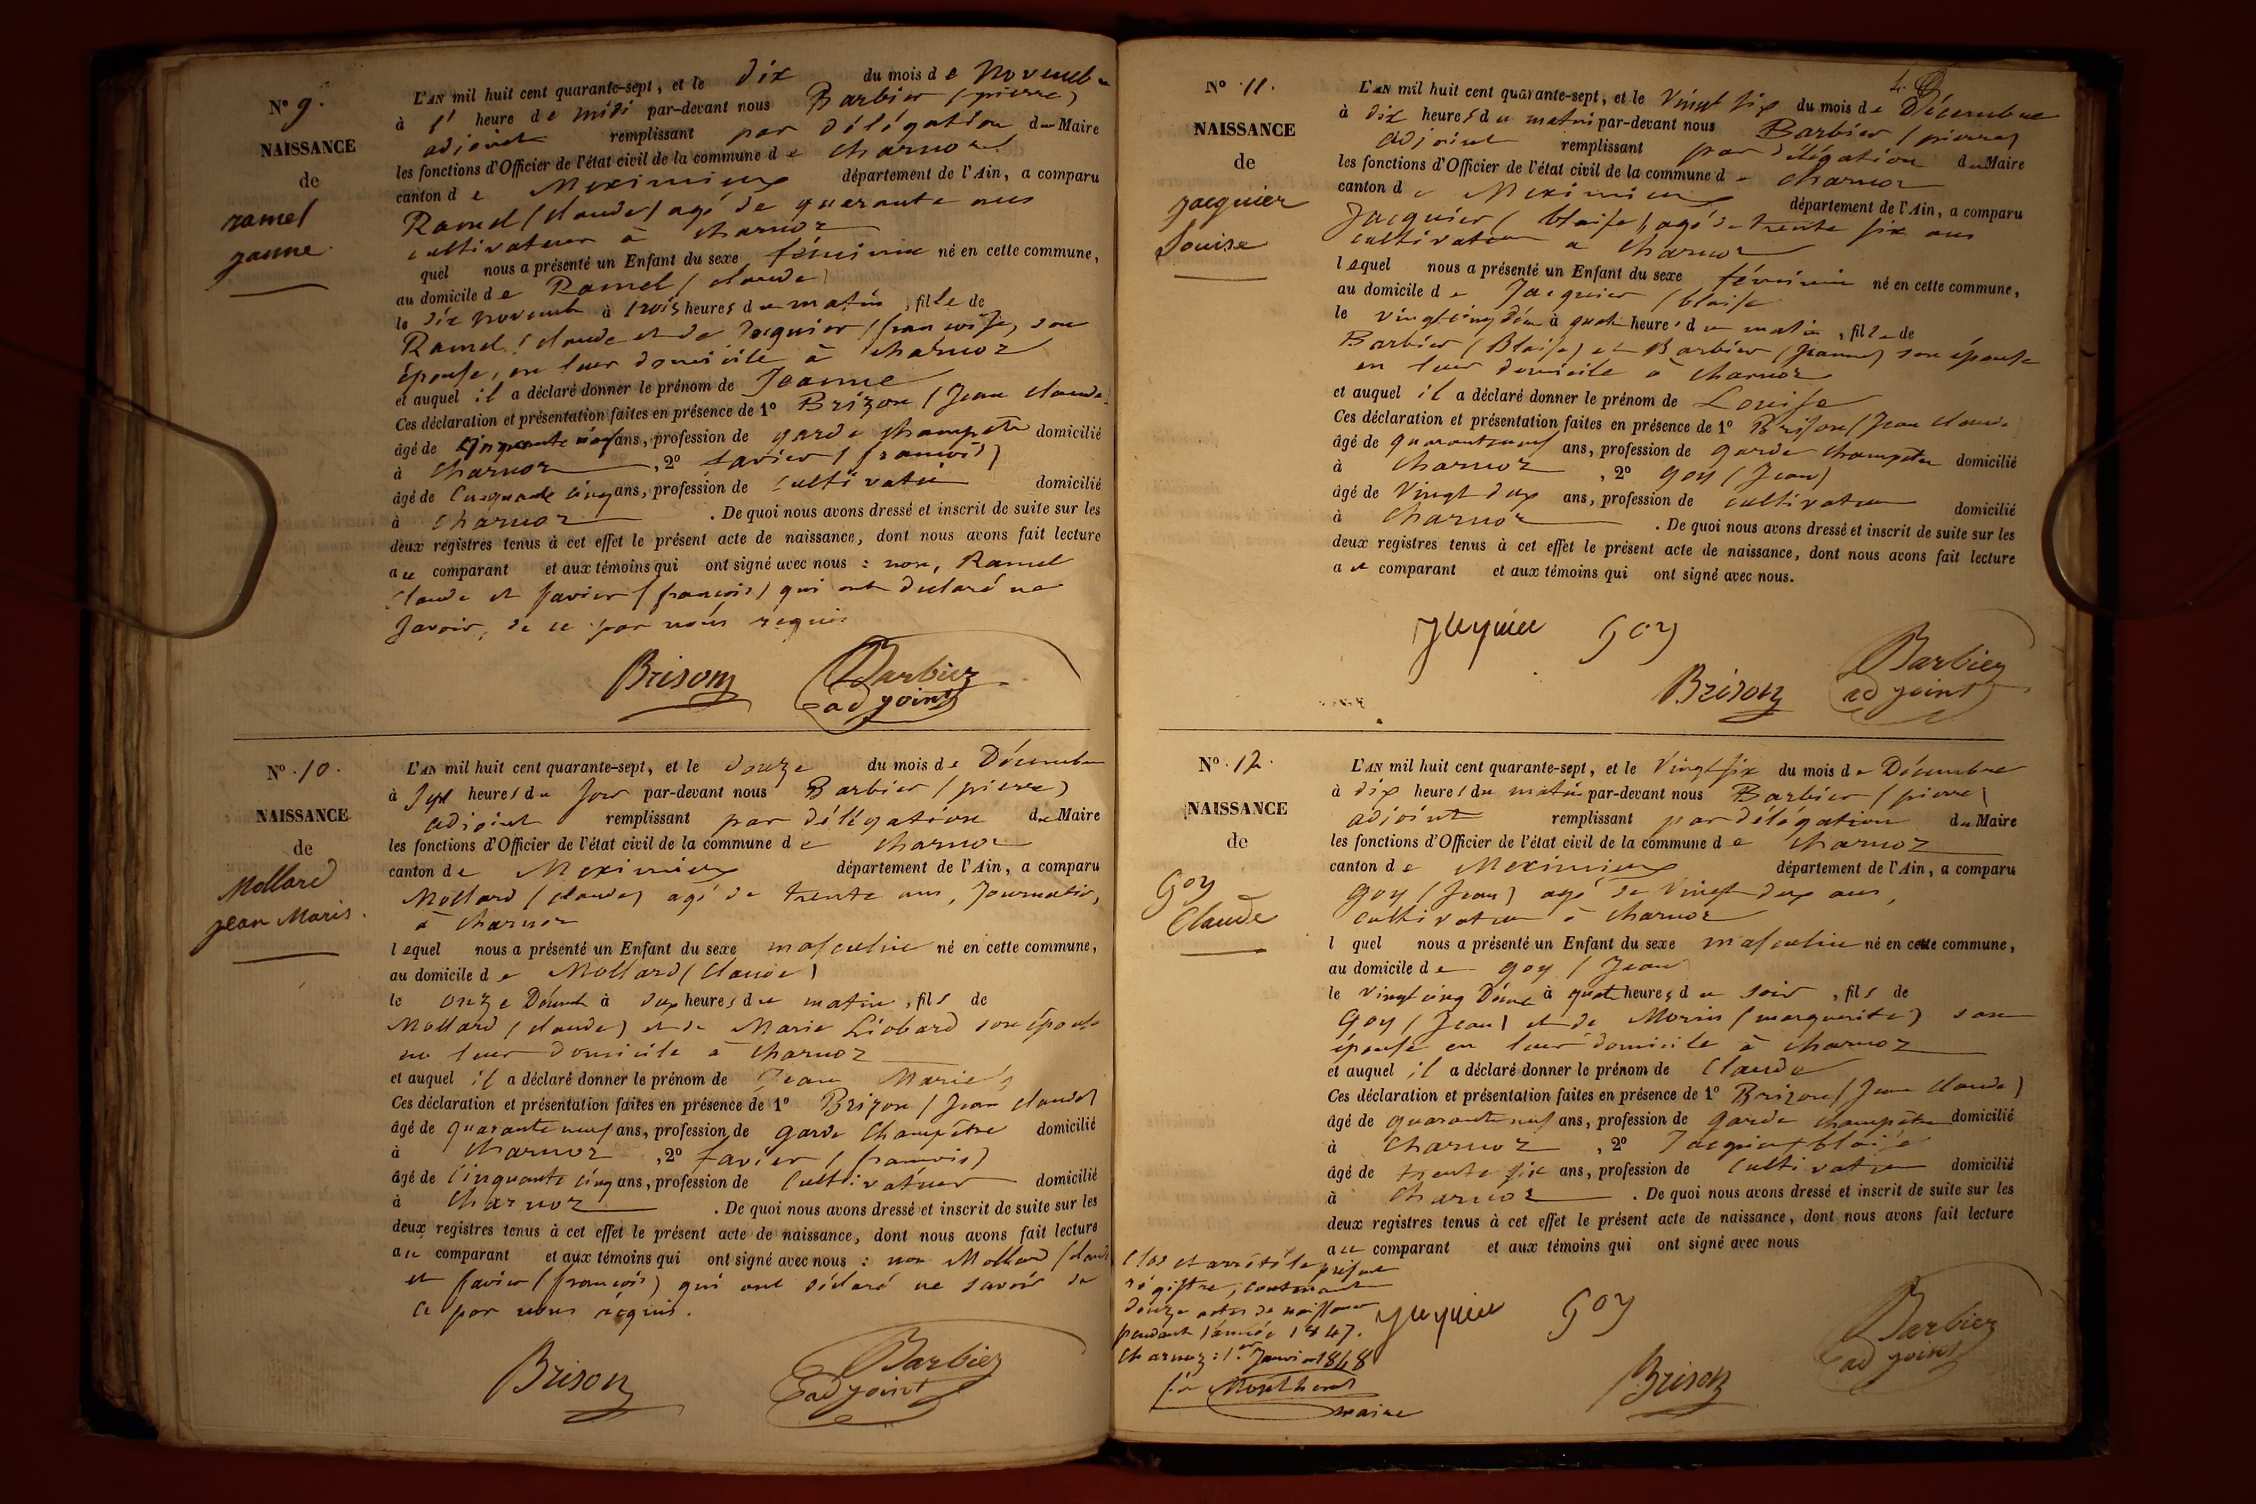 N° 9.
NAISSANCE
de
ramel
janne
L'AN mil huit cent quarante-sept, et le dix du mois de Novembre
à heure de midi par-devant nous Barbier (pierre)
adjoint remplissant par délégation du Maire
les fonctions d'Officier de l'état civil de la commune de Charnoz
canton de Meximieux département de l'Ain, a comparu
Ramel (claude) agé de quarante ans
cultivateur à charnoz
quel nous a présenté un Enfant du sexe féminin né en cette commune,
au domicile de Ramel (claude)
le dix novemb à trois heures du matin, fille de
Ramel (claude et de Jacquier (francoise) son
épouse, en leur domicile à charnoz
et auquel il a déclaré donner le prénom de Jeanne
Ces déclaration et présentation faites en présence de 1° Brizon (Jean claude)
âgé de ans, profession de garde champetre domicilié
à Charnoz, 2° favier (francois)
âgé de Cinquante cinq ans, profession de cultivateur domicilié
à charnoz. De quoi nous avons dressé et inscrit de suite sur les
deux registres tenus à cet effet le présent acte de naissance, dont nous avons fait lecture
au comparant et aux témoins qui ont signé avec nous : non, Ramel
claude et favier (francois) qui ont declaré ne
savoir, de ce par nous requis
Brison Barbier
adjoint
N° 10.
NAISSANCE
de
Mollard
jean Marie.
L'AN mil huit cent quarante-sept, et le douze du mois de Décembre
à Sept heures du soir par-devant nous Barbier (pierre)
adjoint remplissant par délégation du Maire
les fonctions d'Officier de l'état civil de la commune de charnoz
canton de Meximieux département de l'Ain, a comparu
Mollard (claude) agé de trente ans, Journalier,
à charnoz
lequel nous a présenté un Enfant du sexe masculin né en cette commune,
au domicile de Mollard (claude)
le onze Décemb à dux heures du matin, fils de
Mollard (claude) et de Marie Liobard son épouse
en leur domicile à charnoz
et auquel il a déclaré donner le prénom de Jean Marie
Ces déclaration et présentation faites en présence de 1° Brizon (Jean claude)
âgé de quarante neuf ans, profession de garde Champêtre domicilié
à charnoz, 2° favier (francois)
âgé de Cinquante cinq ans, profession de Cultivateur domicilié
à charnoz. De quoi nous avons dressé et inscrit de suite sur les
deux registres tenus à cet effet le présent acte de naissance, dont nous avons fait lecture
au comparant et aux témoins qui ont signé avec nous : non Mollard (claude
et favier (francois) qui ont déclaré ne savoir de
ce par nous requis.
Brison Barbier
adjoint
N° 11.
NAISSANCE
de
jacquier
Louise
L'AN mil huit cent quarante-sept, et le Vingt six du mois de Décembre
à dix heures du matin par-devant nous Barbier (pierre)
adjoint remplissant par délégation du Maire
les fonctions d'Officier de l'état civil de la commune de charnoz
canton de Meximieux département de l'Ain, a comparu
Jacquier (blaise) agé de trente six ans
cultivateur a Charnoz
lequel nous a présenté un Enfant du sexe féminin né en cette commune,
au domicile de Jacquier (blaise
le vingt cinq Décem à quatre heures du matin, fille de
Barbier (Blaise) et Barbier (Jeanne) son épouse
en leur domicile à charnoz
et auquel il a déclaré donner le prénom de Louise
Ces déclaration et présentation faites en présence de 1° Brison (Jean claude
âgé de quarante neuf ans, profession de garde champetre domicilié
à charnoz, 2° goy (Jean)
âgé de Vingt dux ans, profession de cultivateur domicilié
à charnoz. De quoi nous avons dressé et inscrit de suite sur les
deux registres tenus à cet effet le présent acte de naissance, dont nous avons fait lecture
au comparant et aux témoins qui ont signé avec nous.
Goy
Brison Barbier
adjoint
N° 12.
NAISSANCE
de
Goy
Claude
L'AN mil huit cent quarante-sept, et le Vingt six du mois de Décembre
à dix heures du matin par-devant nous Barbier (pierre)
adjoint remplissant par délégation du Maire
les fonctions d'Officier de l'état civil de la commune de charnoz
canton de Meximieux département de l'Ain, a comparu
Goy (Jean) agé de Vingt dux ans,
cultivateur à charnoz
l quel nous a présenté un Enfant du sexe masculin né en cette commune,
au domicile de goy (Jean
le Vingt cinq Décem à quatre heures du soir, fils de
Goy (Jean) et de Morin (marguerite) son
épouse en leur domicile à charnoz
et auquel il a déclaré donner le prénom de Claude
Ces déclaration et présentation faites en présence de 1° Brizon (Jean claude)
âgé de quarante neuf ans, profession de garde champetre domicilié
à charnoz, 2° Jacquier blaise
âgé de trente six ans, profession de Cultivateur domicilié
à charnoz. De quoi nous avons dressé et inscrit de suite sur les
deux registres tenus à cet effet le présent acte de naissance, dont nous avons fait lecture
au comparant et aux témoins qui ont signé avec nous
Clos et arrêté le présent
régistre, contenant
douze actes de naissance
pendant l'année 1847.
Charnoz : 1er Janvier 1848
maire
Goy
Brison Barbier
adjoint